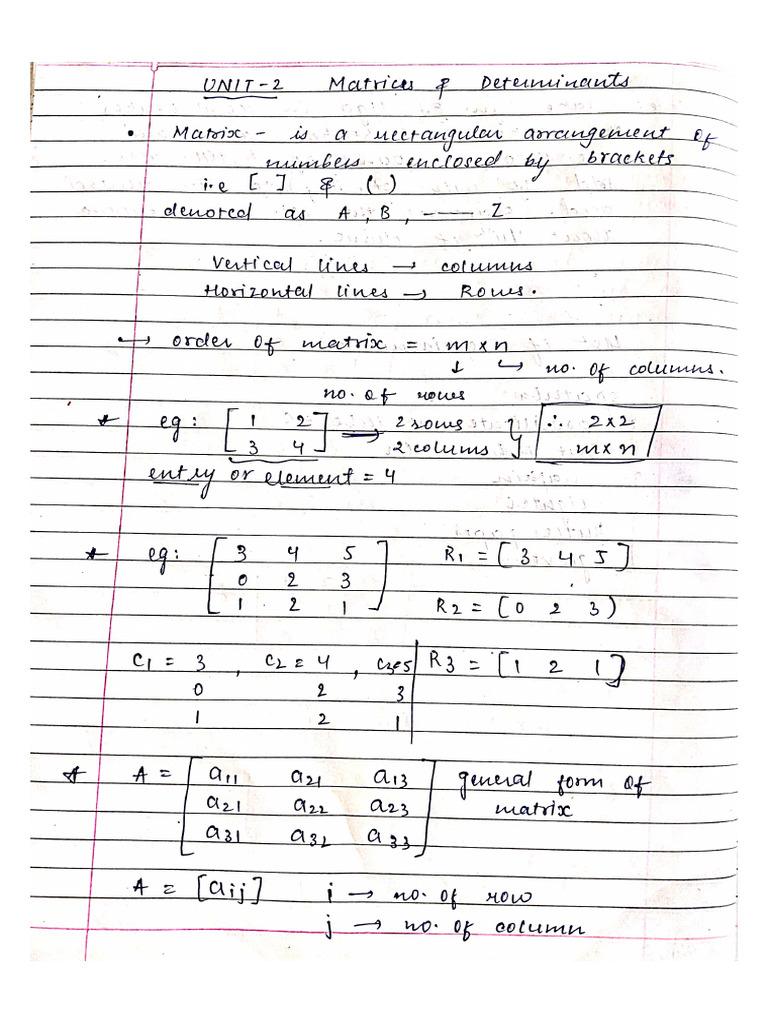 UNIT-2 Matrices & Determinants
• Matrix - is a rectangular arrangement of
numbers enclosed by brackets
i.e [ ] & ( )
denoted as A, B, ---- Z
Vertical lines → columns
Horizontal lines → Rows.
↪ order of matrix = m×n
↓ ↪ no. of columns.
no. of rows
* eg: [ 1 2 ] → 2 rows } ∴ 2×2
[ 3 4 ] 2 colums m×n
entry or element = 4
* eg: [ 3 4 5 ] R1 = [3 4 5]
0 2 3
[ 1 2 1 ] R2 = (0 2 3)
C1 = 3 , C2 = 4 , C3=5 R3 = [1 2 1]
0 2 3
1 2 1
* A = [ a11 a21 a13 ] general form of
a21 a22 a23 matrix
a31 a32 a33
A = [aij] i → no. of row
j → no. of column